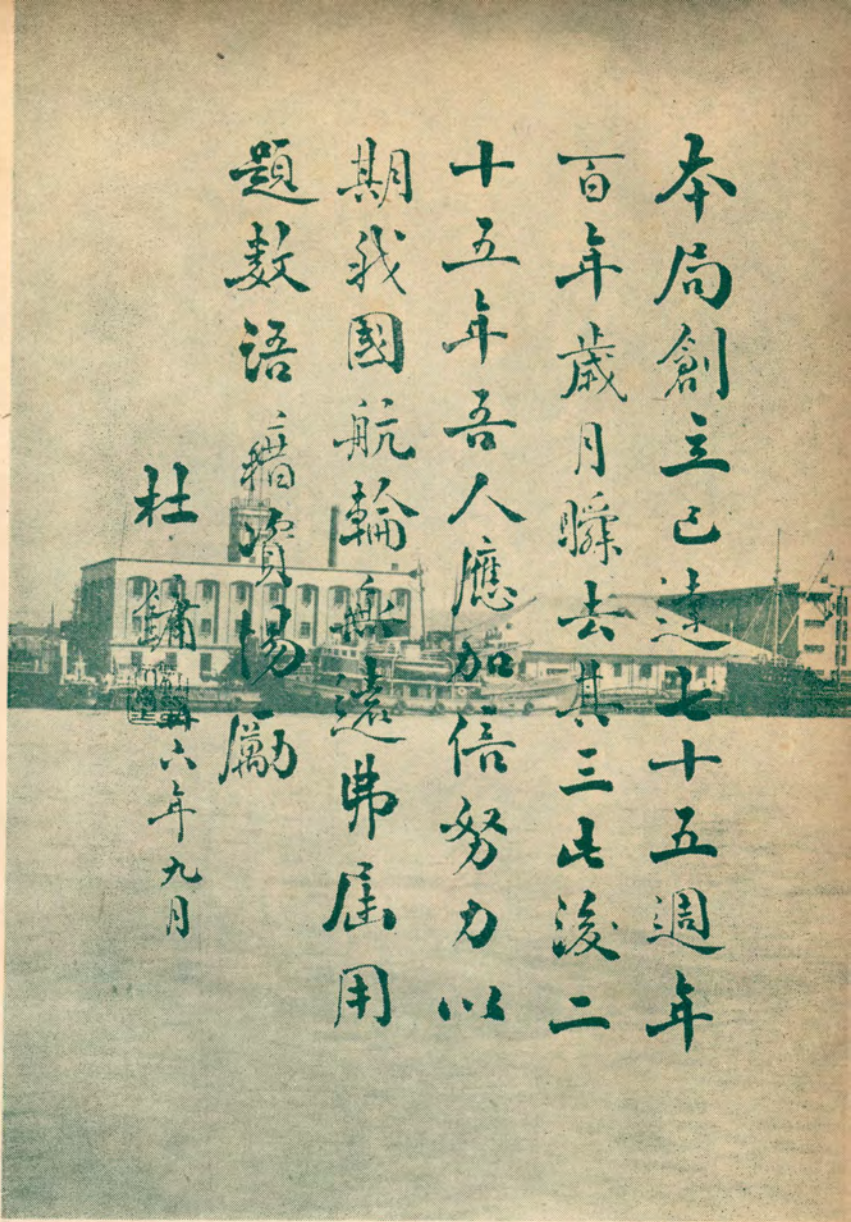 本局創立已達七十五週年
百年歲月瞬去其三此後二
十五年吾人應加倍努力以
期我國航輪無遠弗屆用
題數語藉資惕勵
杜鏞
卅六年九月